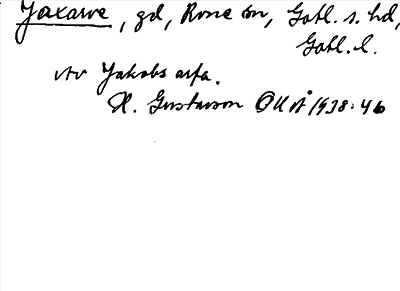 Jaxarve, gd, Rone sn, Gotl. s. hd,
Gotl. l.
Av Jakobs arfa.
H. Gustavson OUÅ 1938: 46